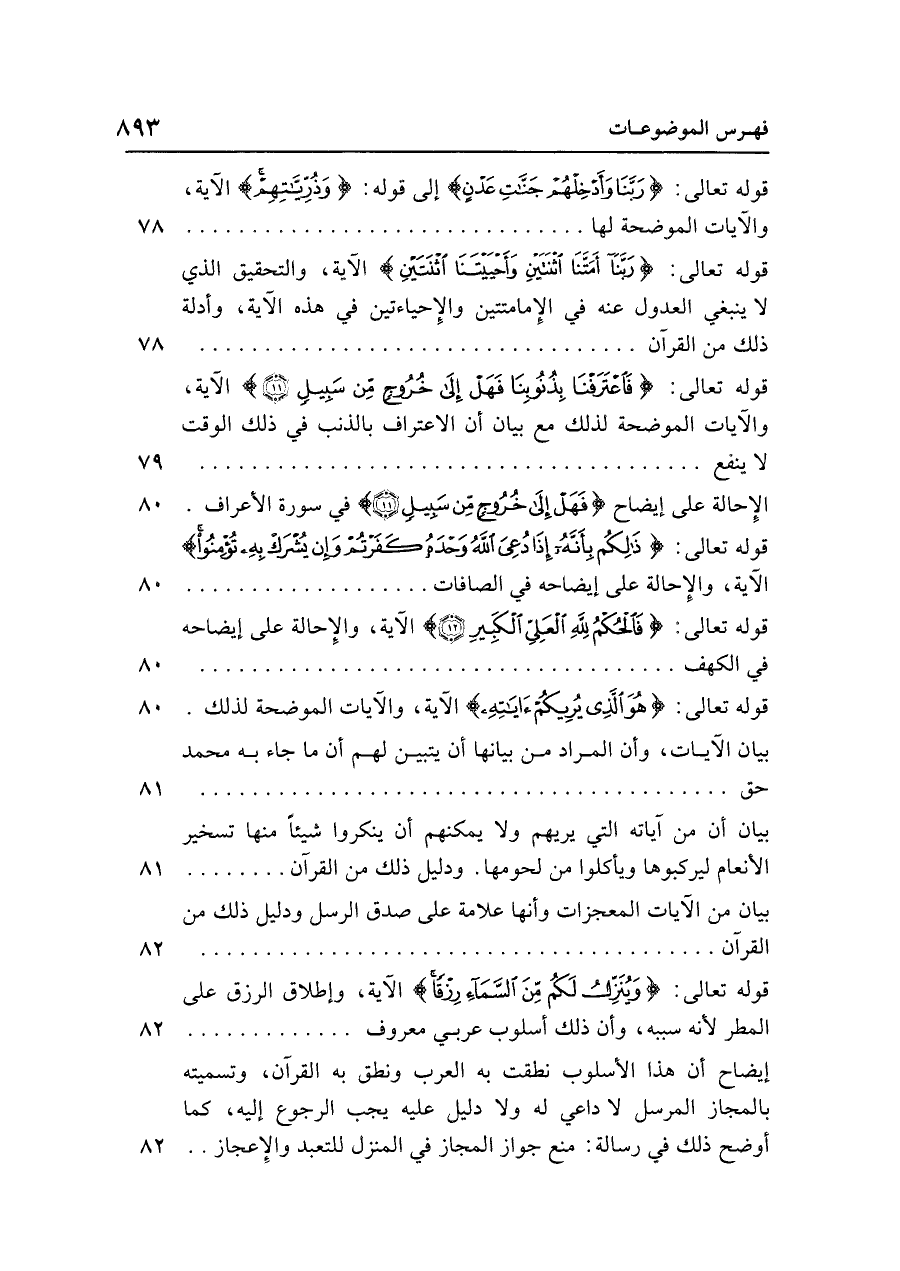 فهـرس الموضوعـات ٨٩٣
قوله تعالى: ﴿ رَبَّنَا وَأَدْخِلْهُمْ جَنَّٰتِ عَدْنٍ﴾ إلى قوله: ﴿ وَذُرِّيَّٰتِهِمْۚ﴾ الآية،
والآيات الموضحة لها . . . . . . . . . . . . . . . . . . . . . . . . . . . . . . ٧٨
قوله تعالى: ﴿ رَبَّنَآ أَمَتَّنَا ٱثْنَتَيْنِ وَأَحْيَيْتَـنَا ٱثْنَتَيْنِ ﴾ الآية، والتحقيق الذي
لا ينبغي العدول عنه في الإمامتتين والإحياءتين في هذه الآية، وأدلة
ذلك من القرآن . . . . . . . . . . . . . . . . . . . . . . . . . . . . . . . . . ٧٨
قوله تعالى: ﴿ فَٱعْتَرَفْنَا بِذُنُوبِنَا فَهَلْ إِلَىٰ خُرُوجٍ مِّن سَبِيـلٍ ۝١١ ﴾ الآية،
والآيات الموضحة لذلك مع بيان أن الاعتراف بالذنب في ذلك الوقت
لا ينفع . . . . . . . . . . . . . . . . . . . . . . . . . . . . . . . . . . . . . . ٧٩
الإحالة على إيضاح ﴿ فَهَلْ إِلَىٰ خُرُوجٍ مِّن سَبِيـلٍ ۝١١﴾ في سورة الأعراف . ٨٠
قوله تعالى: ﴿ ذَٰلِكُم بِأَنَّهُۥٓ إِذَا دُعِىَ ٱللَّهُ وَحْدَهُۥ كَفَرْتُمْ وَإِن يُشْرَكْ بِهِۦ تُؤْمِنُوا۟ۚ﴾
الآية، والإحالة على إيضاحه في الصافات . . . . . . . . . . . . . . . . . . . ٨٠
قوله تعالى: ﴿ فَٱلْحُكْمُ لِلَّهِ ٱلْعَلِىِّ ٱلْكَبِيـرِ ۝١٢﴾ الآية، والإحالة على إيضاحه
في الكهف . . . . . . . . . . . . . . . . . . . . . . . . . . . . . . . . . . . . ٨٠
قوله تعالى: ﴿ هُوَ ٱلَّذِى يُرِيكُمْ ءَايَٰتِهِۦ﴾ الآية، والآيات الموضحة لذلك . ٨٠
بيان الآيـات، وأن المـراد مـن بيانها أن يتبيـن لهـم أن ما جاء بـه محمد
حق . . . . . . . . . . . . . . . . . . . . . . . . . . . . . . . . . . . . . . . . ٨١
بيان أن من آياته التي يريهم ولا يمكنهم أن ينكروا شيئاً منها تسخير
الأنعام ليركبوها ويأكلوا من لحومها. ودليل ذلك من القرآن . . . . . . . . ٨١
بيان من الآيات المعجزات وأنها علامة على صدق الرسل ودليل ذلك من
القرآن . . . . . . . . . . . . . . . . . . . . . . . . . . . . . . . . . . . . . . . ٨٢
قوله تعالى: ﴿ وَيُنَزِّلُ لَكُم مِّنَ ٱلسَّمَآءِ رِزْقًاۚ ﴾ الآية، وإطلاق الرزق على
المطر لأنه سببه، وأن ذلك أسلوب عربـي معروف . . . . . . . . . . . . . ٨٢
إيضاح أن هذا الأسلوب نطقت به العرب ونطق به القرآن، وتسميته
بالمجاز المرسل لا داعي له ولا دليل عليه يجب الرجوع إليه، كما
أوضح ذلك في رسالة: منع جواز المجاز في المنزل للتعبد والإعجاز . . ٨٢